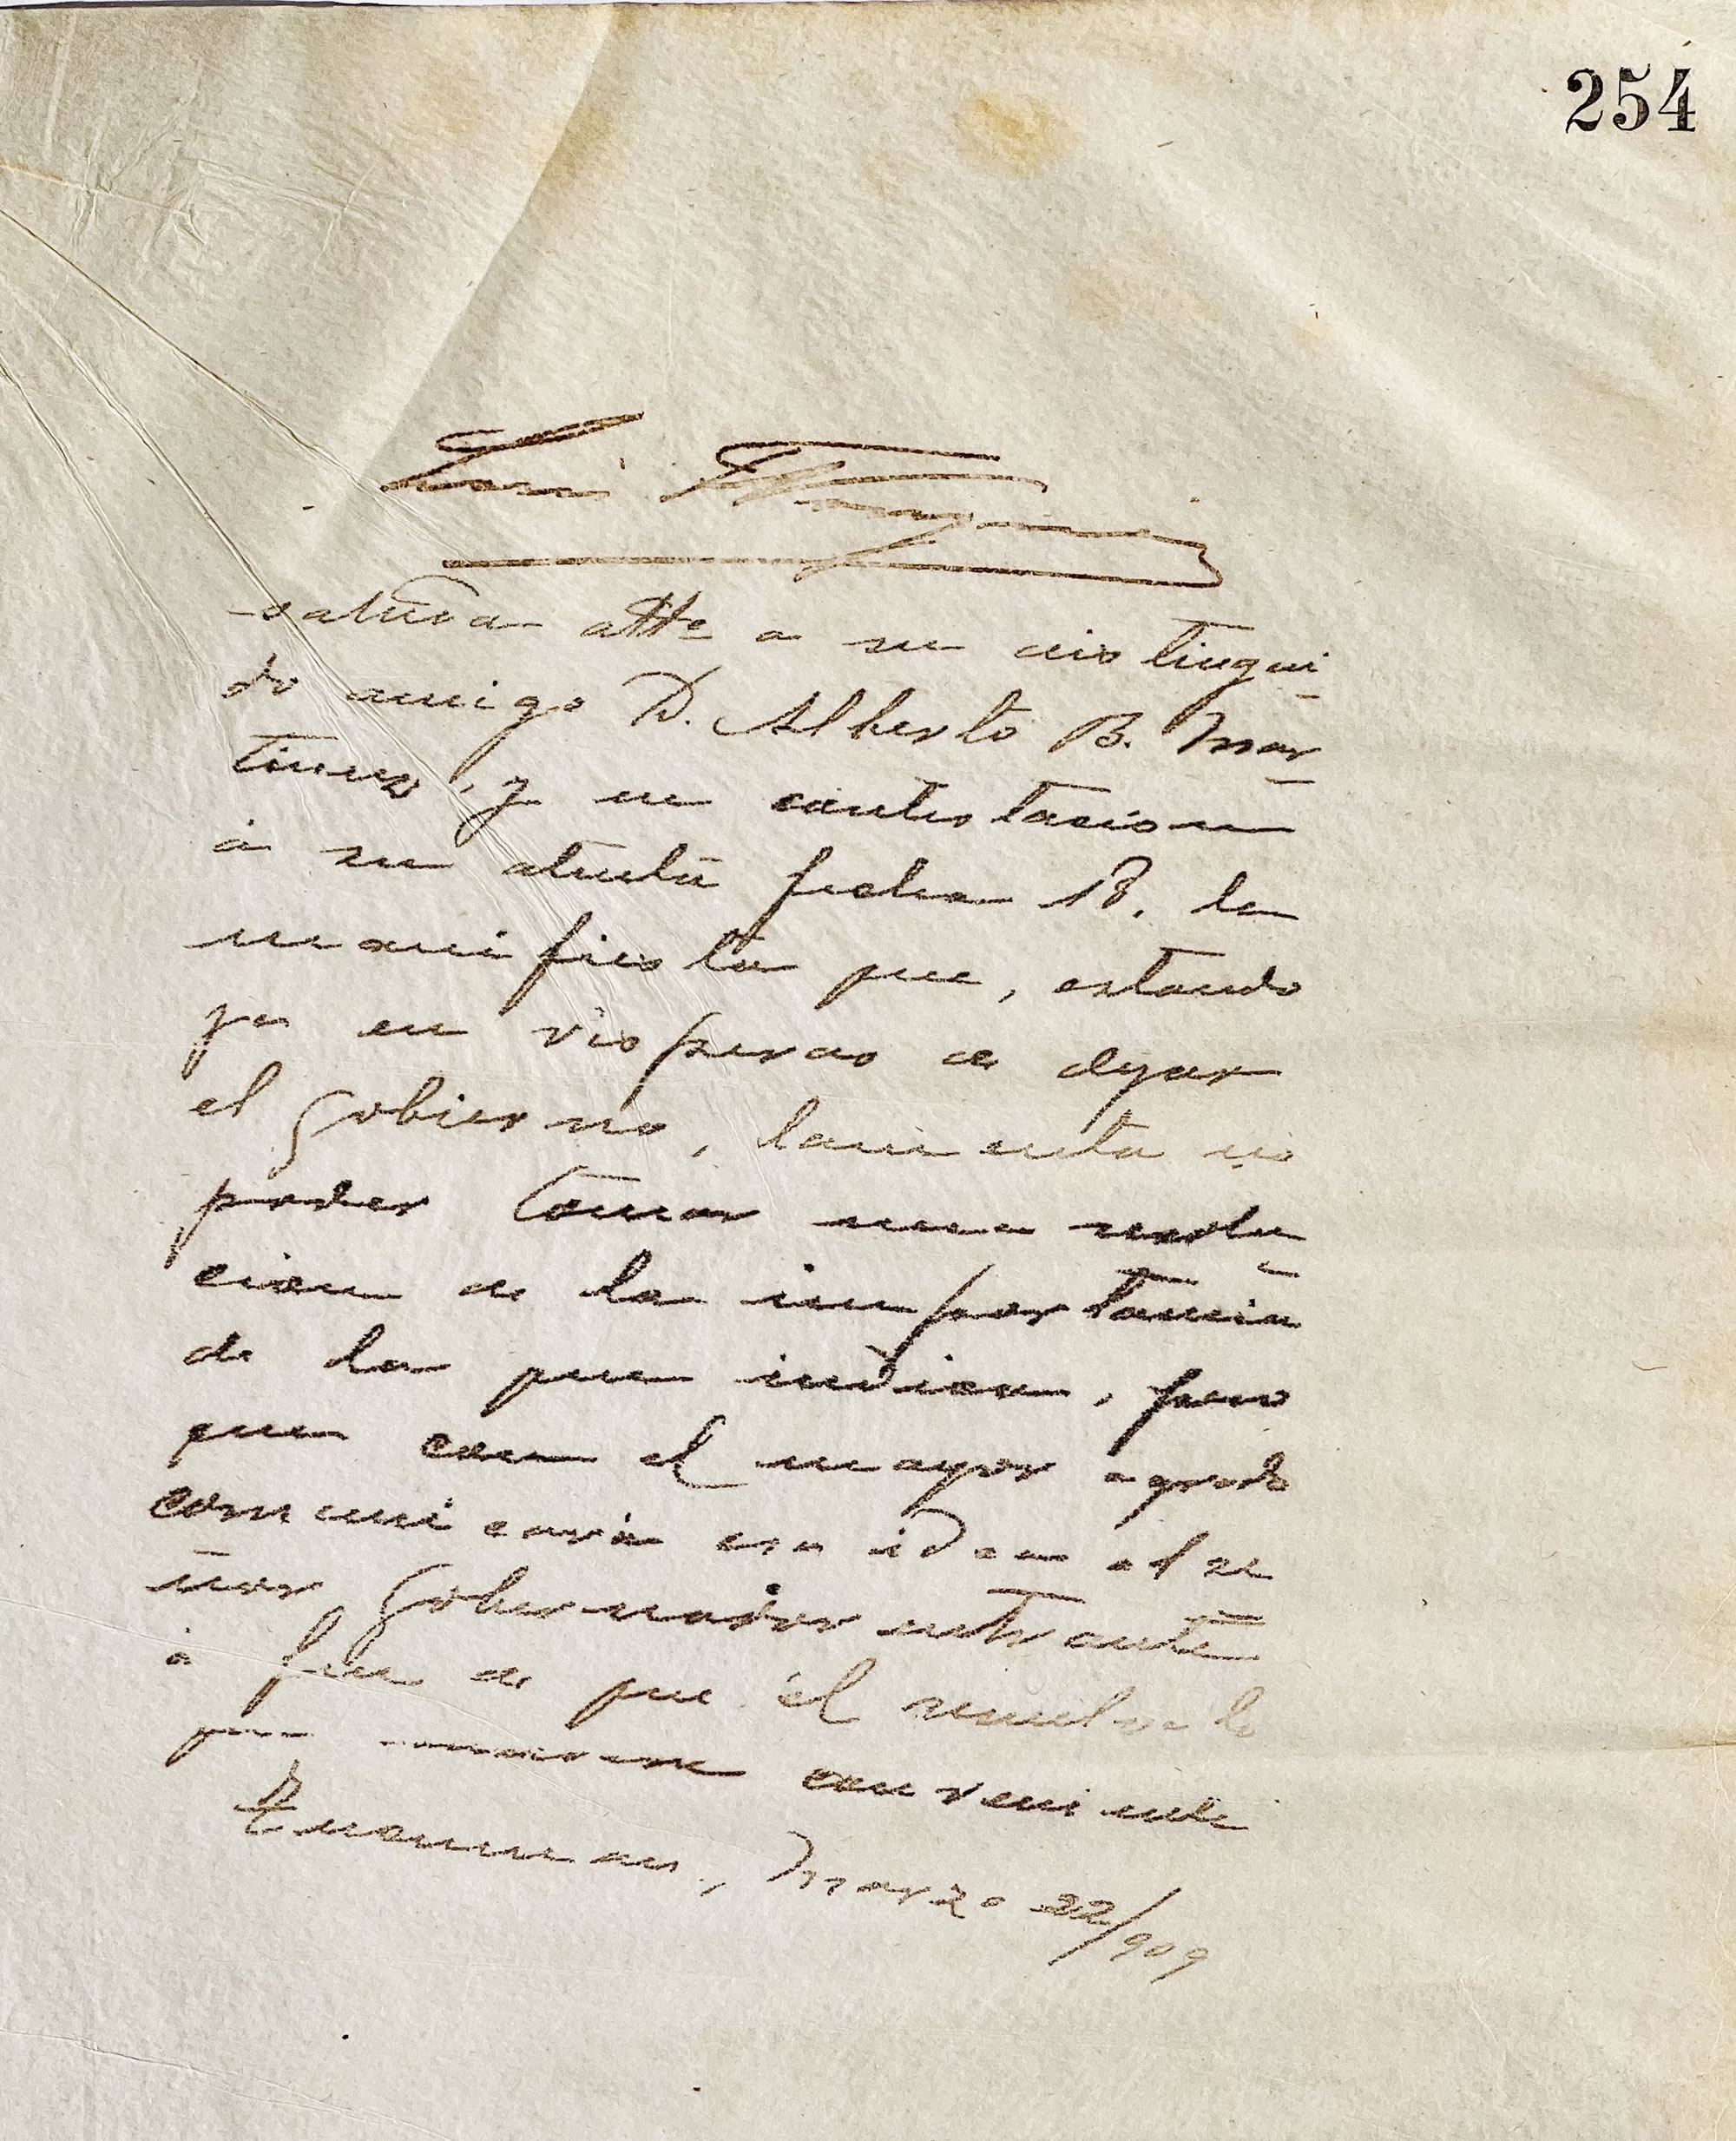 254
saluda atte a su distingui
do amigo D. Alberto B. Mar
tinez, y en contestacion
á su atenta fecha 18, le
manifiesta que, estando
ya en visperas de dejar
el Gobierno, lamenta no
poder tomar una resolu
cion de la importancia
de la que indica, pero
que con el mayor agrado
comunicará esa idea al se
ñor Gobernador entrante
á fin de que él resuelva lo
que conveniente
Tucuman, Marzo 22/909